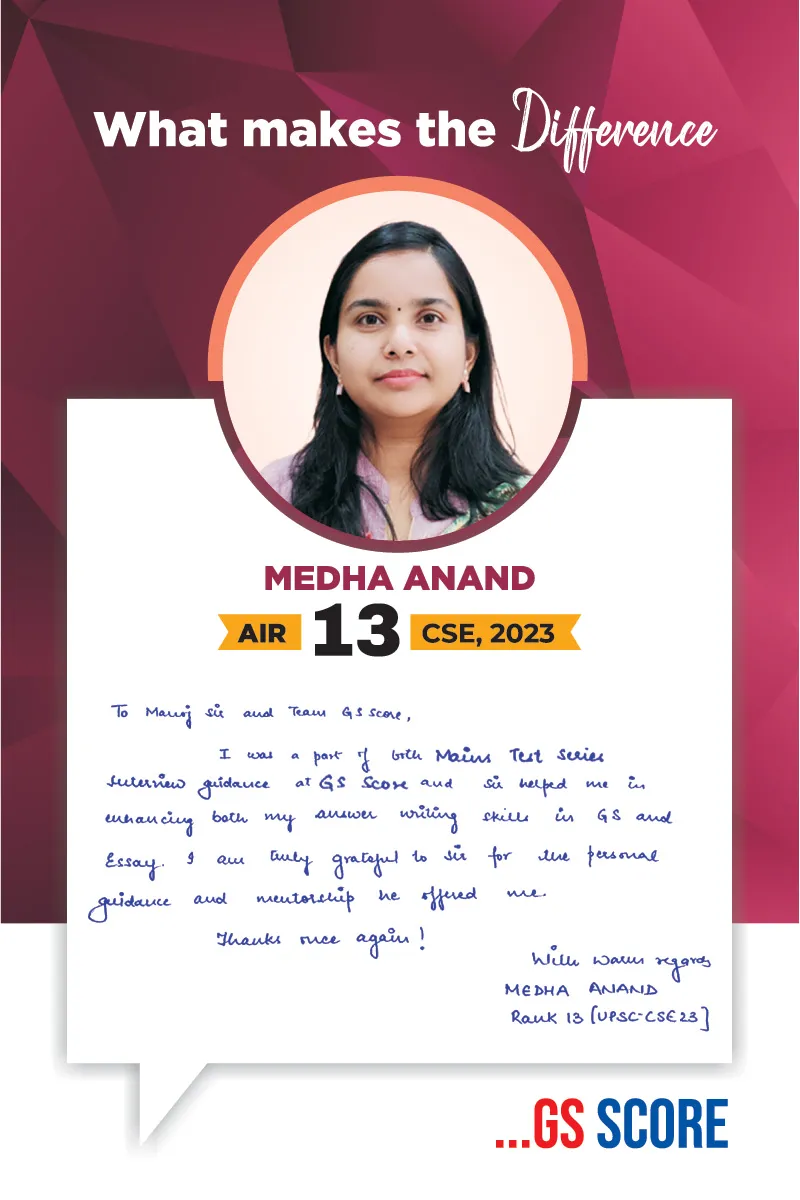 What makes the Difference
MEDHA ANAND
AIR 13 CSE, 2023
To Manoj Sir and Team GS Score,
I was a part of both Mains Test Series
Interview guidance at GS Score and sir helped me in
enhancing both my answer writing skills in GS and
Essay. I am truly grateful to sir for the personal
guidance and mentorship he offered me.
Thanks once again!
With warm regards
MEDHA ANAND
Rank 13 [UPSC-CSE23]
...GS SCORE